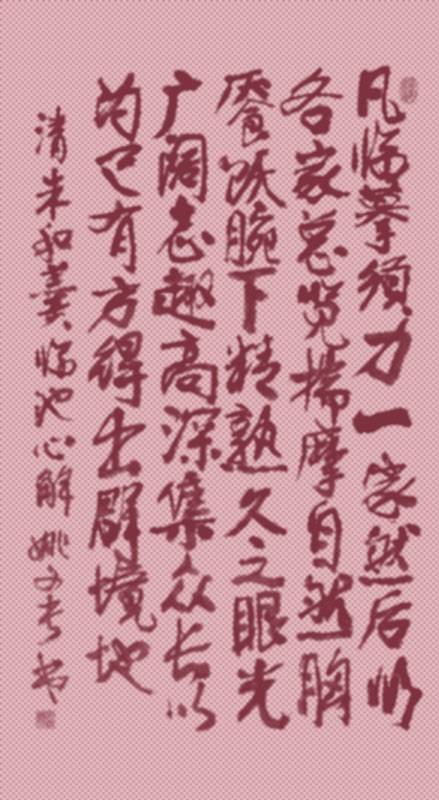 凡临摹须力一家然后以
各家总览揣摩自然胸
餍跃腕下精熟久之眼光
广阔志趣高深集众长以
为己有方得出群境地
清朱和羹临池心解 姚文考书